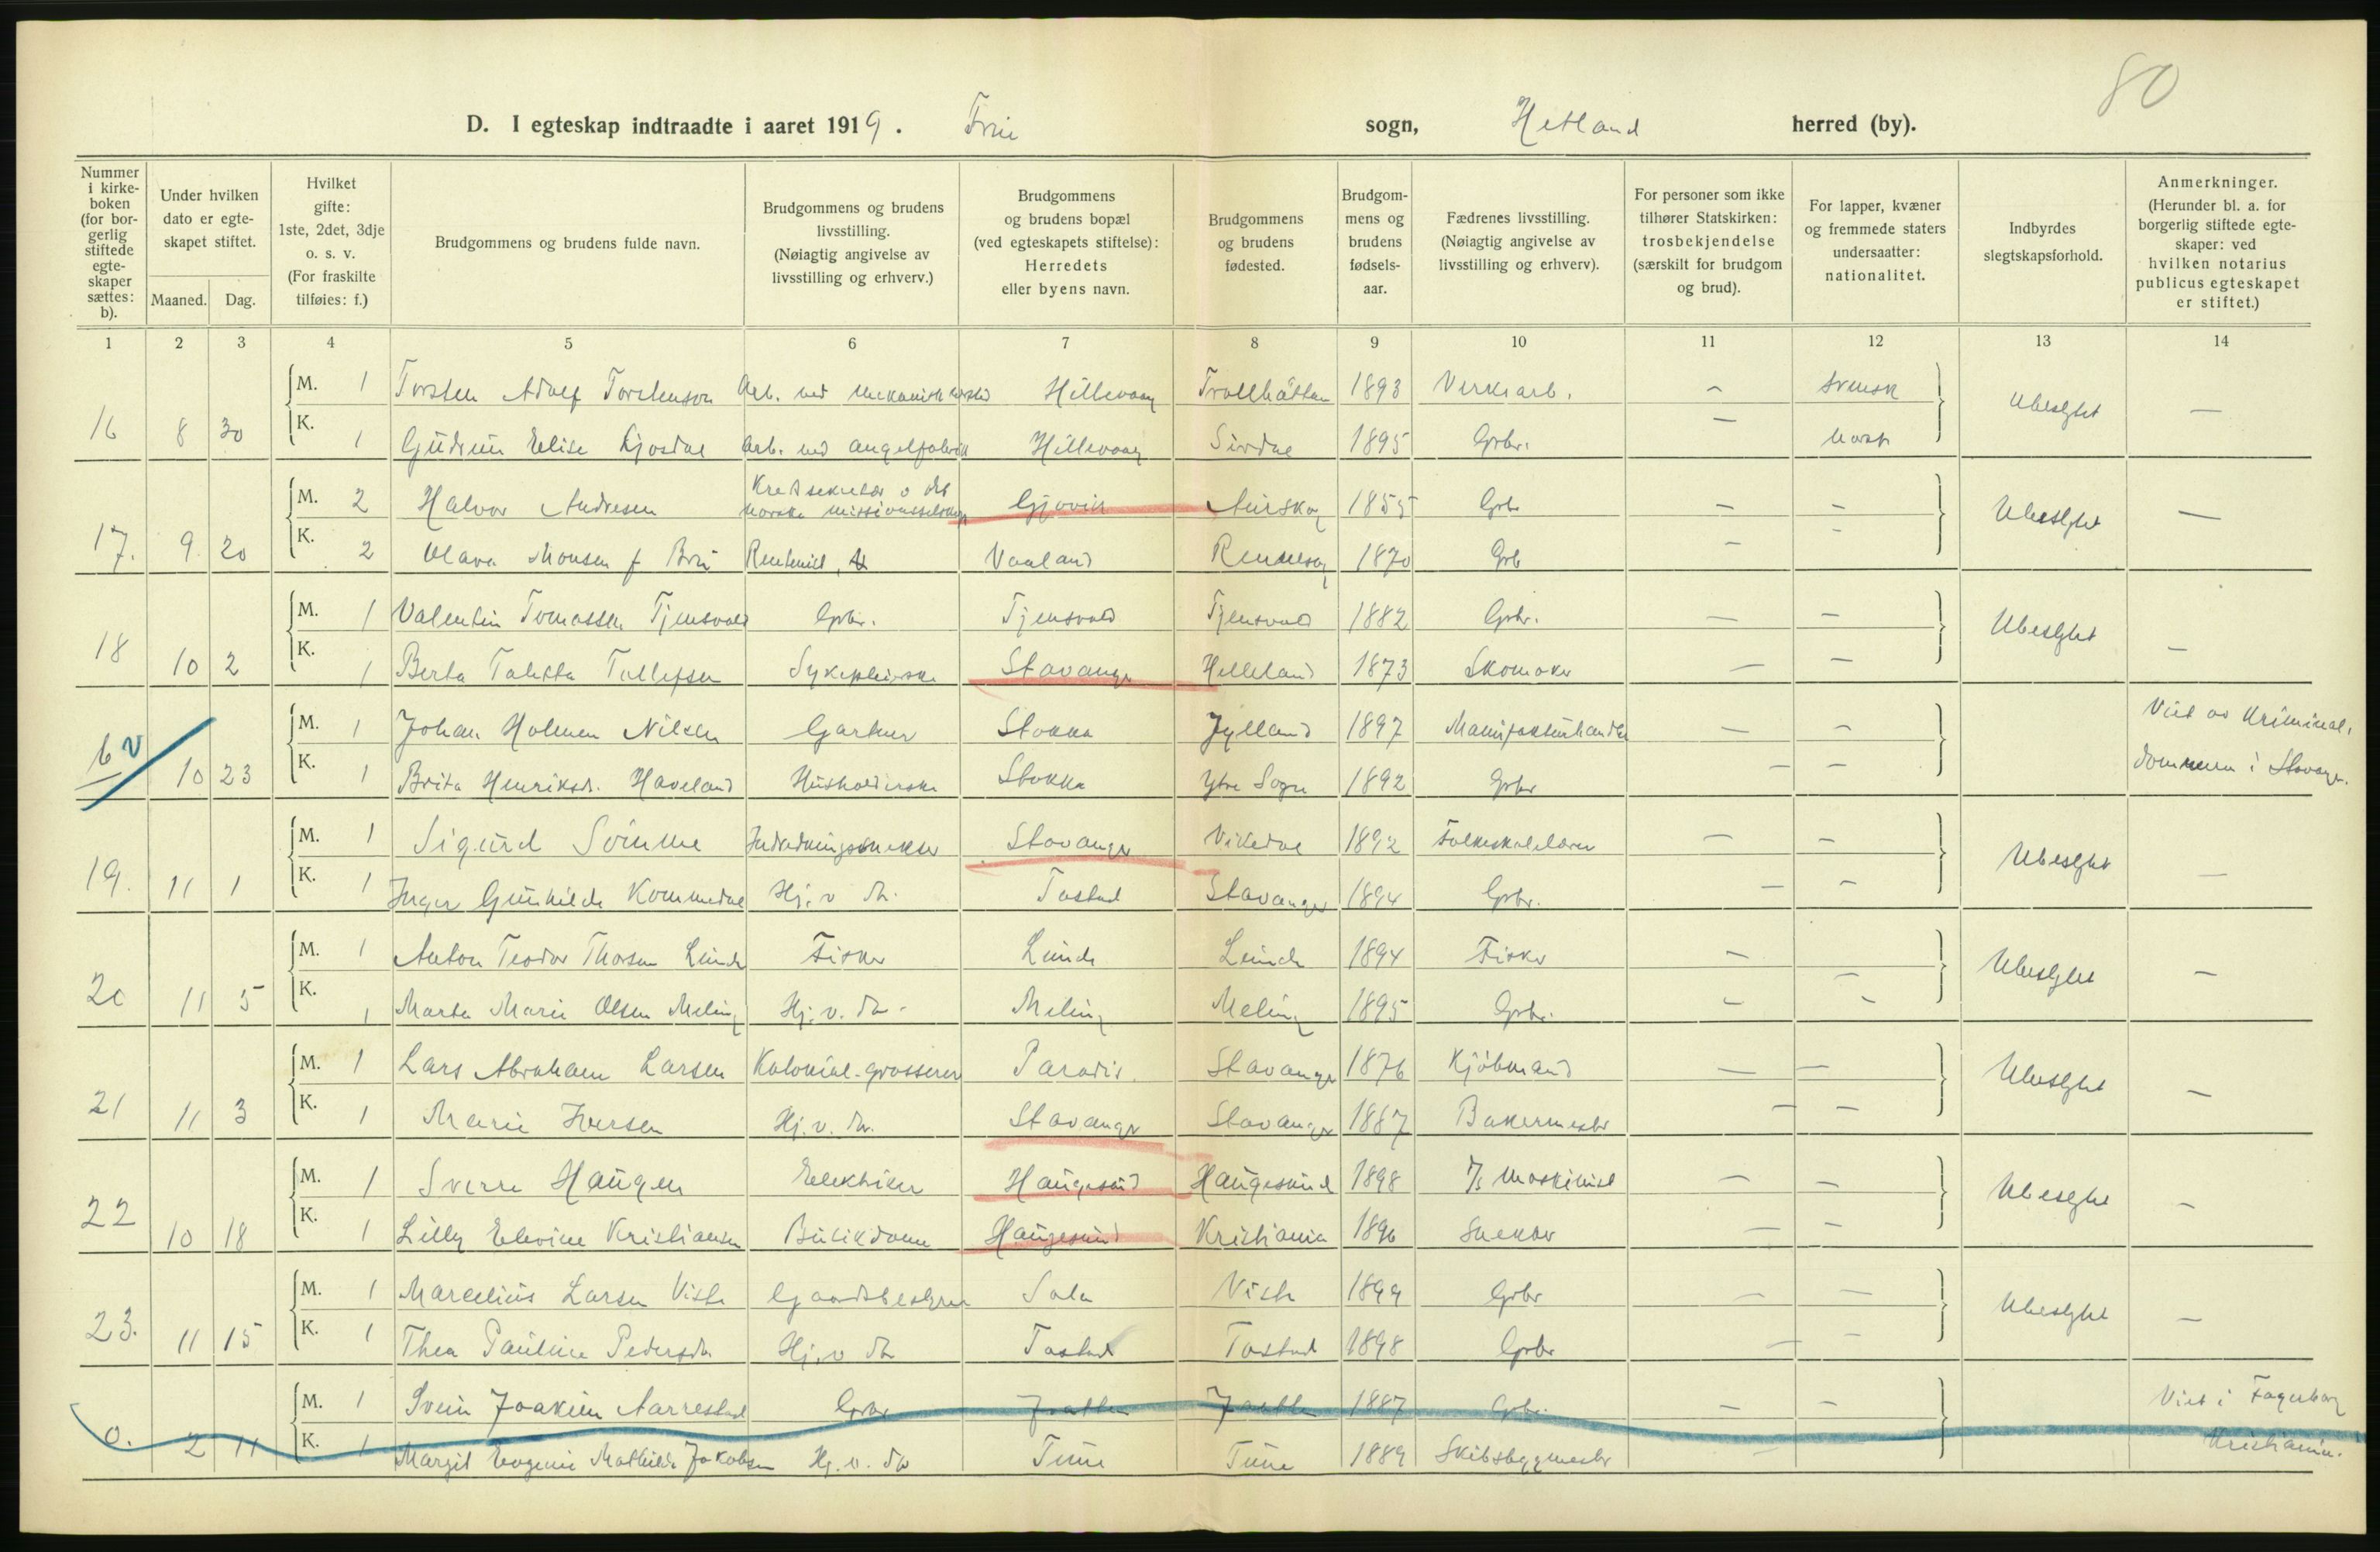 80
D. I egteskap indtraadte i aaret 1919. Frue sogn, Hetland herred (by).
Nummer i kirkeboken (for borgerlig stiftede egteskaper sættes: b).
Under hvilken dato er egteskapet stiftet.
Maaned. Dag.
Hvilket gifte: 1ste, 2det, 3dje o. s. v. (For fraskilte tilføies: f.)
Brudgommens og brudens fulde navn.
Brudgommens og brudens livsstilling. (Nøiagtig angivelse av livsstilling og erhverv.)
Brudgommens og brudens bopæl (ved egteskapets stiftelse): Herredets eller byens navn.
Brudgommens og brudens fødested.
Brudgommens og brudens fødselsaar.
Fædrenes livsstilling. (Nøiagtig angivelse av livsstilling og erhverv).
For personer som ikke tilhører Statskirken: trosbekjendelse (særskilt for brudgom og brud).
For lapper, kvæner og fremmede staters undersaatter: nationalitet.
Indbyrdes slegtskapsforhold.
Anmerkninger. (Herunder bl. a. for borgerlig stiftede egteskaper: ved hvilken notarius publicus egteskapet er stiftet.)
1 2 3 4 5 6 7 8 9 10 11 12 13 14
M. 1 Torsten Adolf Torstenson Arb. ved mekanisk Hillevaag Trollhättan 1893 Verksarb. — svensk
16 8 30 Ubeslgtet —
K. 1 Gudrun Elise Kjosdal Arb. ved angelfabrik Hillevaag Sirdal 1895 Grbr. — norsk
M. 2 Halvor Andresen Kredssekretær v det norske missionsselskap Gjøvik Aurskog 1855 Grb. — —
17. 9 20 Ubeslgtet —
K. 2 Olava Monsen f Bru Rentenist Vaaland Rennesøy 1870 Grb — —
M. 1 Valentin Tomassen Tjensvold Grbr. Tjensvold Tjensvold 1882 Grbr. — —
18 10 2 Ubeslgtet —
K. 1 Berta Taletta Tollefsen Sykepleierske Stavanger Helleland 1873 Skomaker — —
M. 1 Johan Holmen Nilsen Gartner Stokka Jylland 1897 Manufakturhandler — — Viet av Kriminal-
b 2 10 23
K. 1 Brita Henriksdr. Haveland Husholderske Stokka Ytre Sogn 1892 Grbr — — dommeren i Stavanger.
M. 1 Sigurd Sømme Indredningssnekker Stavanger Vikedal 1892 Folkeskolelærer — —
19. 11 1 Ubeslgtet —
K. 1 Inger Gunhilda Kommedal Hj. v dr. Tastad Stavanger 1894 Grbr. — —
M. 1 Anton Teodor Thorsen Lunde Fisker Lunde Lunde 1894 Fisker — —
20 11 5 Ubeslgtet —
K. 1 Marta Marie Olsen Meling Hj. v. dr. Meling Meling 1895 Grbr. — —
M. 1 Lars Abraham Larsen Kolonial-grosserer Paradis. Stavanger 1876 Kjøbmand — —
21 11 3 Ubeslgtet —
K. 1 Marie Iversen Hj. v. dr. Stavanger Stavanger 1887 Bakermester — —
M. 1 Sverre Haugen Elektriker Haugesund Haugesund 1898 Maskinist — —
22 10 18 Ubeslgtet —
K. 1 Lilly Elevine Kristiansen Butikdame Haugesund Kristiania 1896 Snekker — —
M. 1 Marcelius Larsen Viste Gaardsbestyrer Sola Viste 1899 Grbr — —
23. 11 15 Ubeslgtet —
K. 1 Thea Pauline Pedersdr. Hj. v dr Tastad Tastad 1898 Grbr — —
M. 1 Svein Joakim Aarrestad Grbr Jaatten Jaatten 1887 Grbr. — — Viet i Fagerborg
0. 2 11
K. 1 Margit Eugenie Mathilde Jakobsen Hj. v. dr Tune Tune 1889 Skibsbygmester — Kristiania.